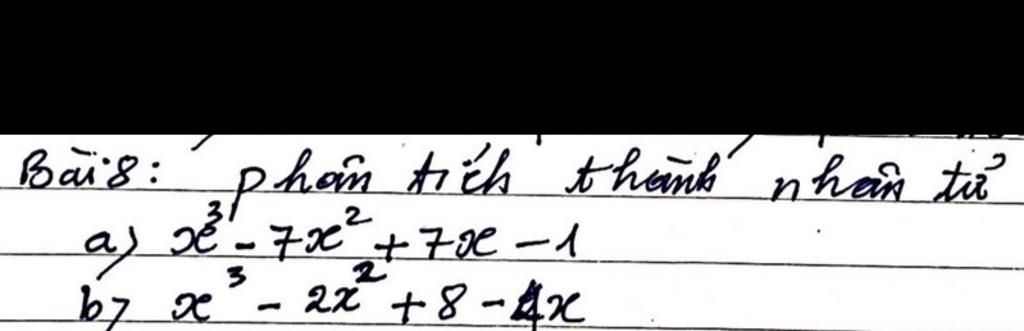 Bài 8: phân tích thành nhân tử
a) x³ - 7x² + 7x - 1
b) x³ - 2x² + 8 - 4x